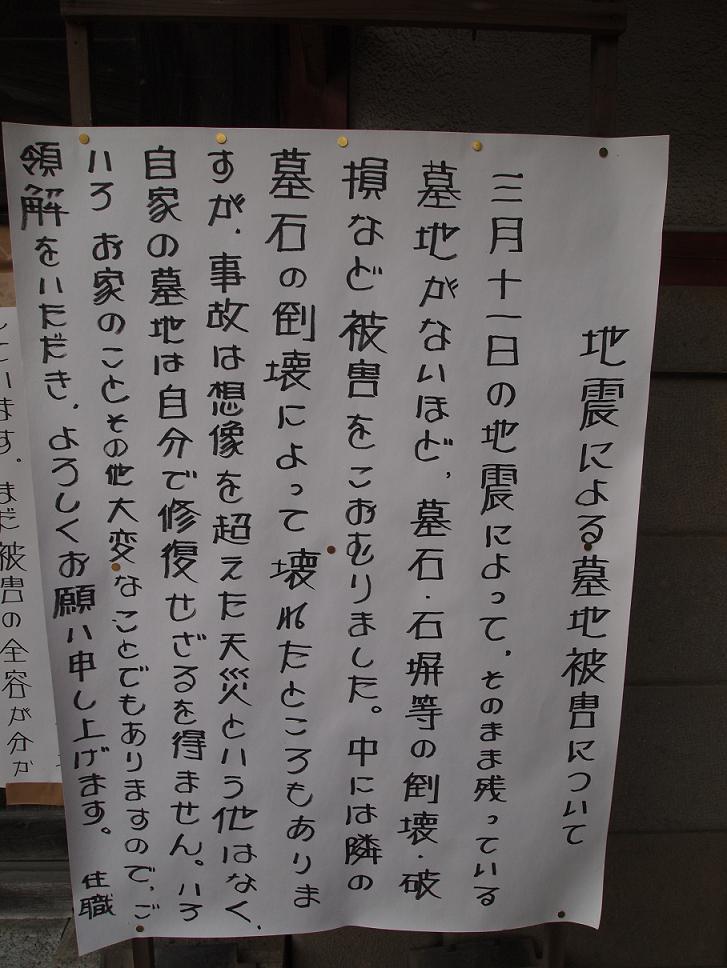 地震による墓地被害について
三月十一日の地震によって，そのまま残っている
墓地がないほど，墓石・石塀等の倒壊・破
損など被害をこおむりました。中には隣の
墓石の倒壊によって壊れたところもありま
すが，事故は想像を超えた天災という他はなく，
自家の墓地は自分で修復せざるを得ません。いろ
いろお家のことその他大変なことでもありますので，ご
領解をいただき，よろしくお願い申し上げます。 住職
しています。まだ被害の全容が分か